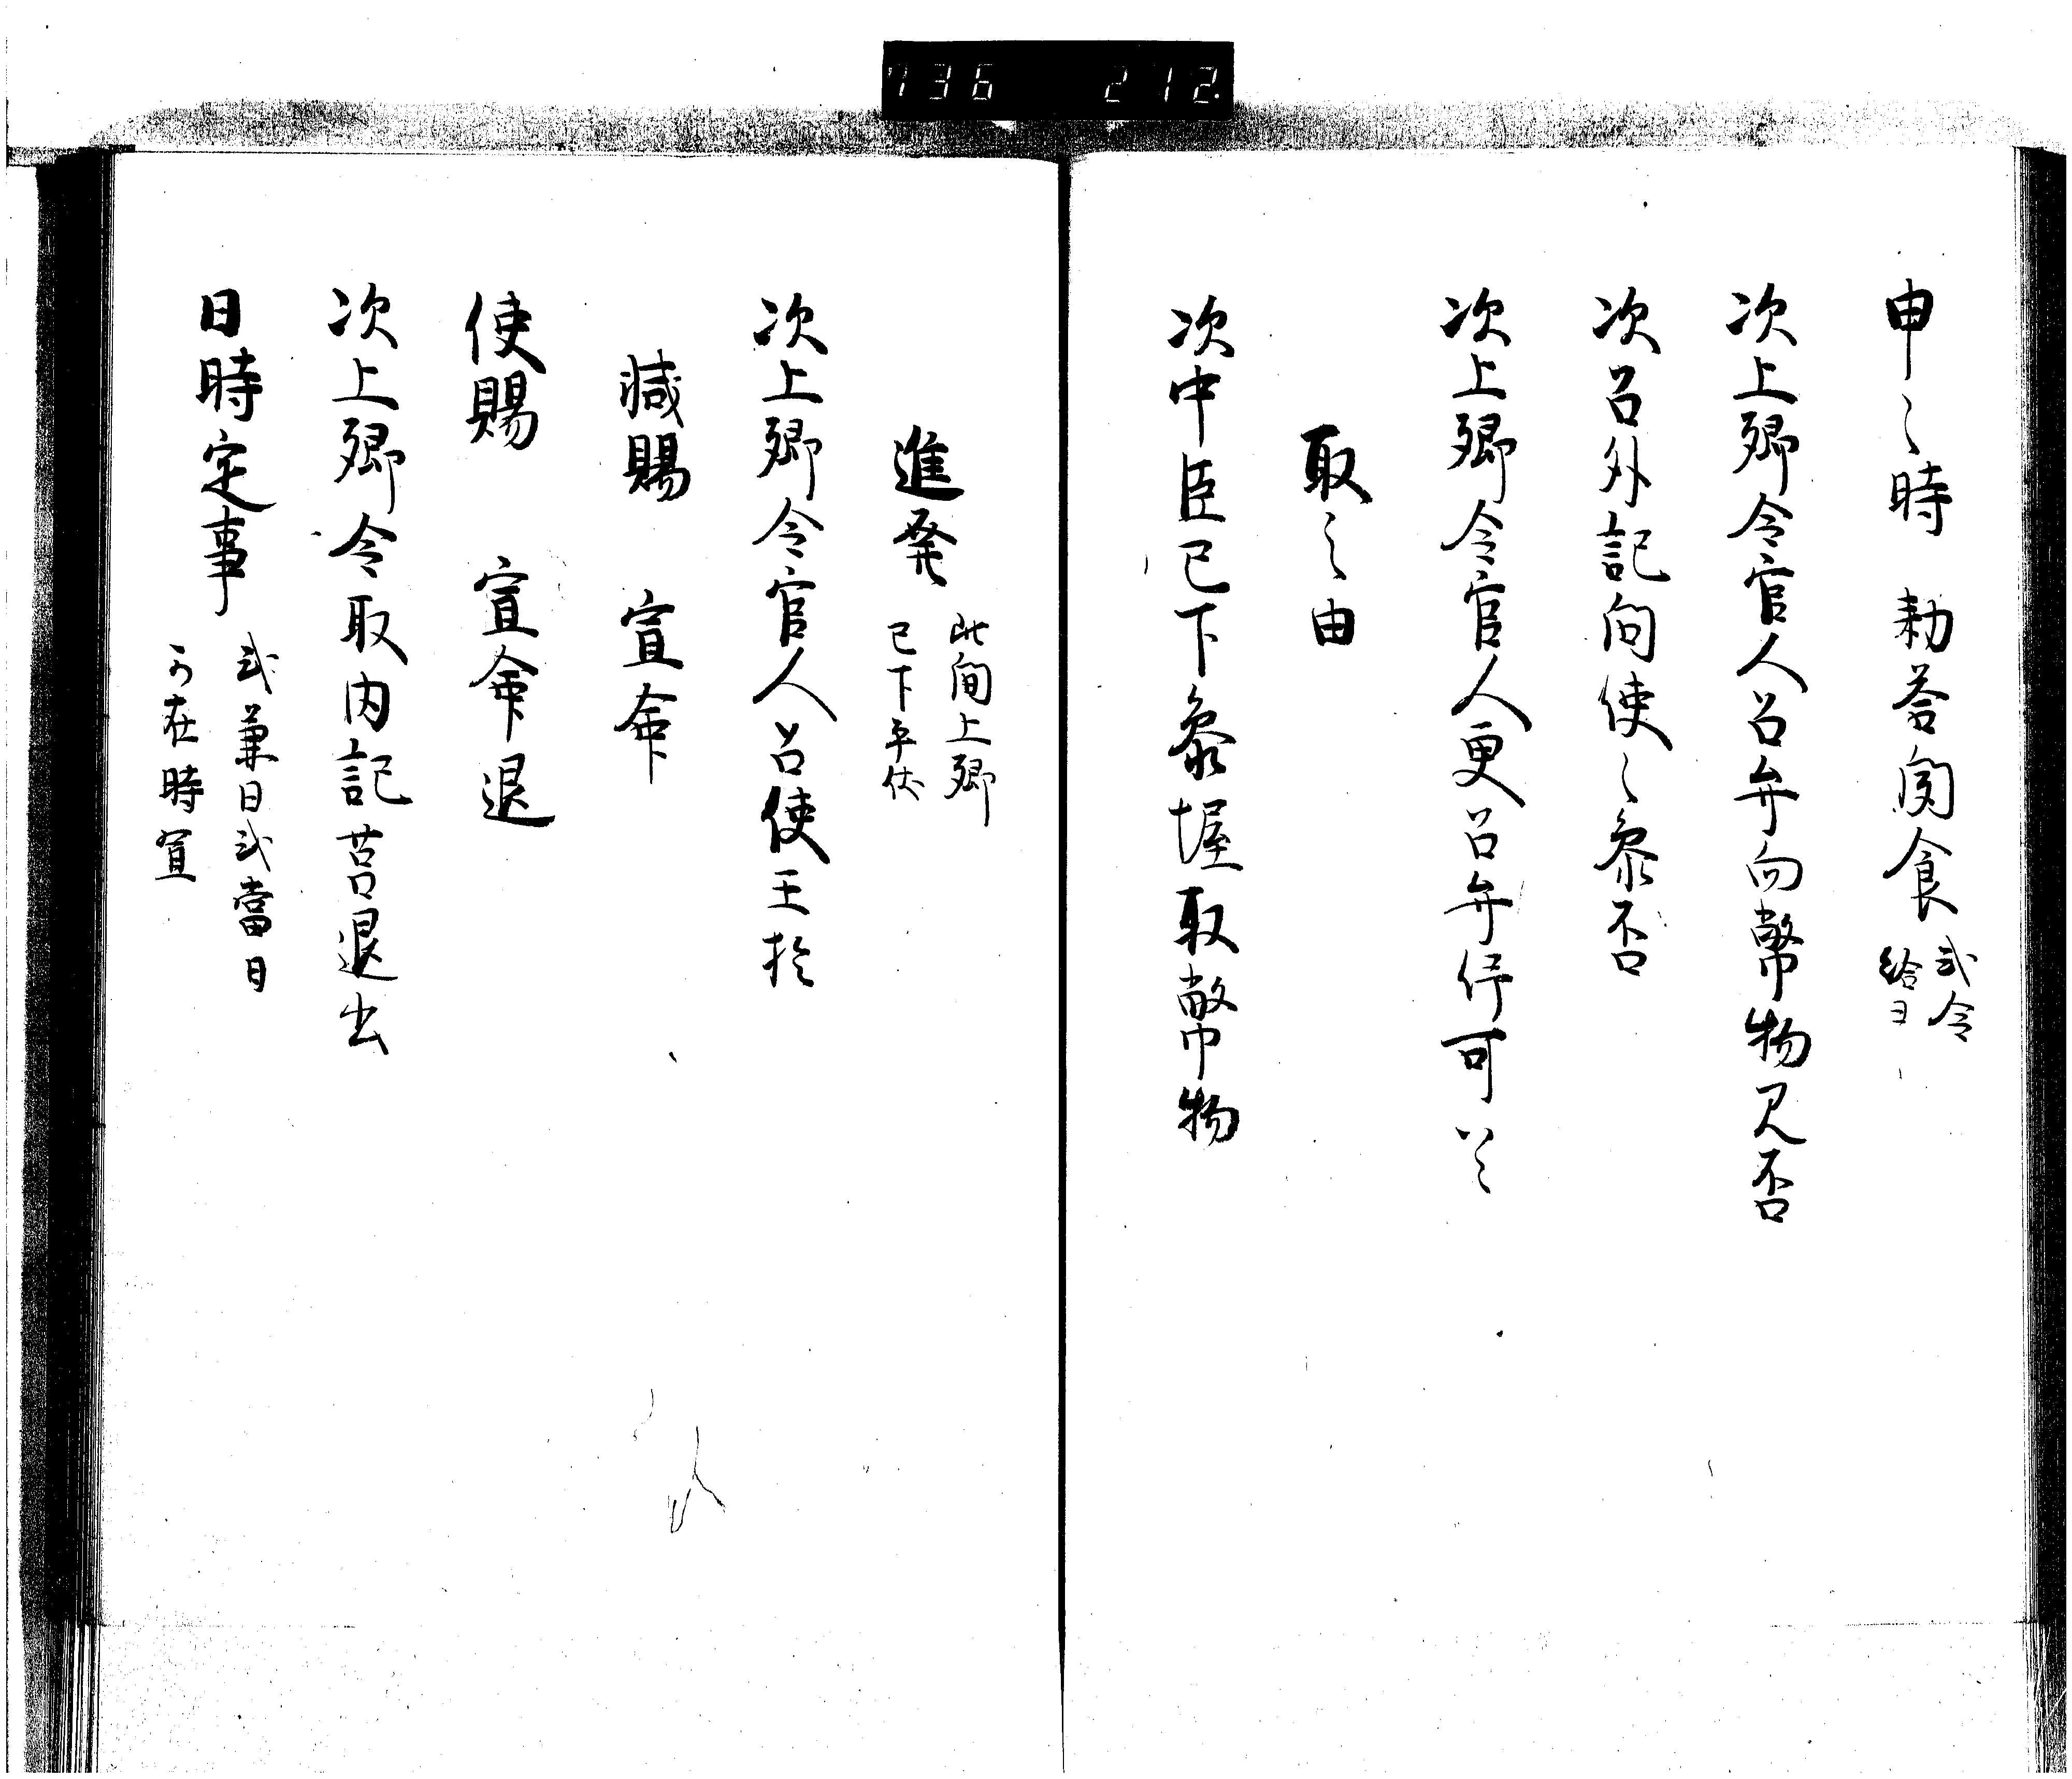 736 212
申〻時 勅答聞食 或令給ヨ
次上卿令官人召弁問幣物具否
次召外記問使〻参否
次上卿令官人更召弁仰可
取之由
次中臣已下参幄取幣物
進発 此間上卿已下平伏
次上卿令官人召使王於
賜 宣命
使賜 宣命退
次上卿令取内記筥退出
日時定事 或兼日或當日
可在時宜